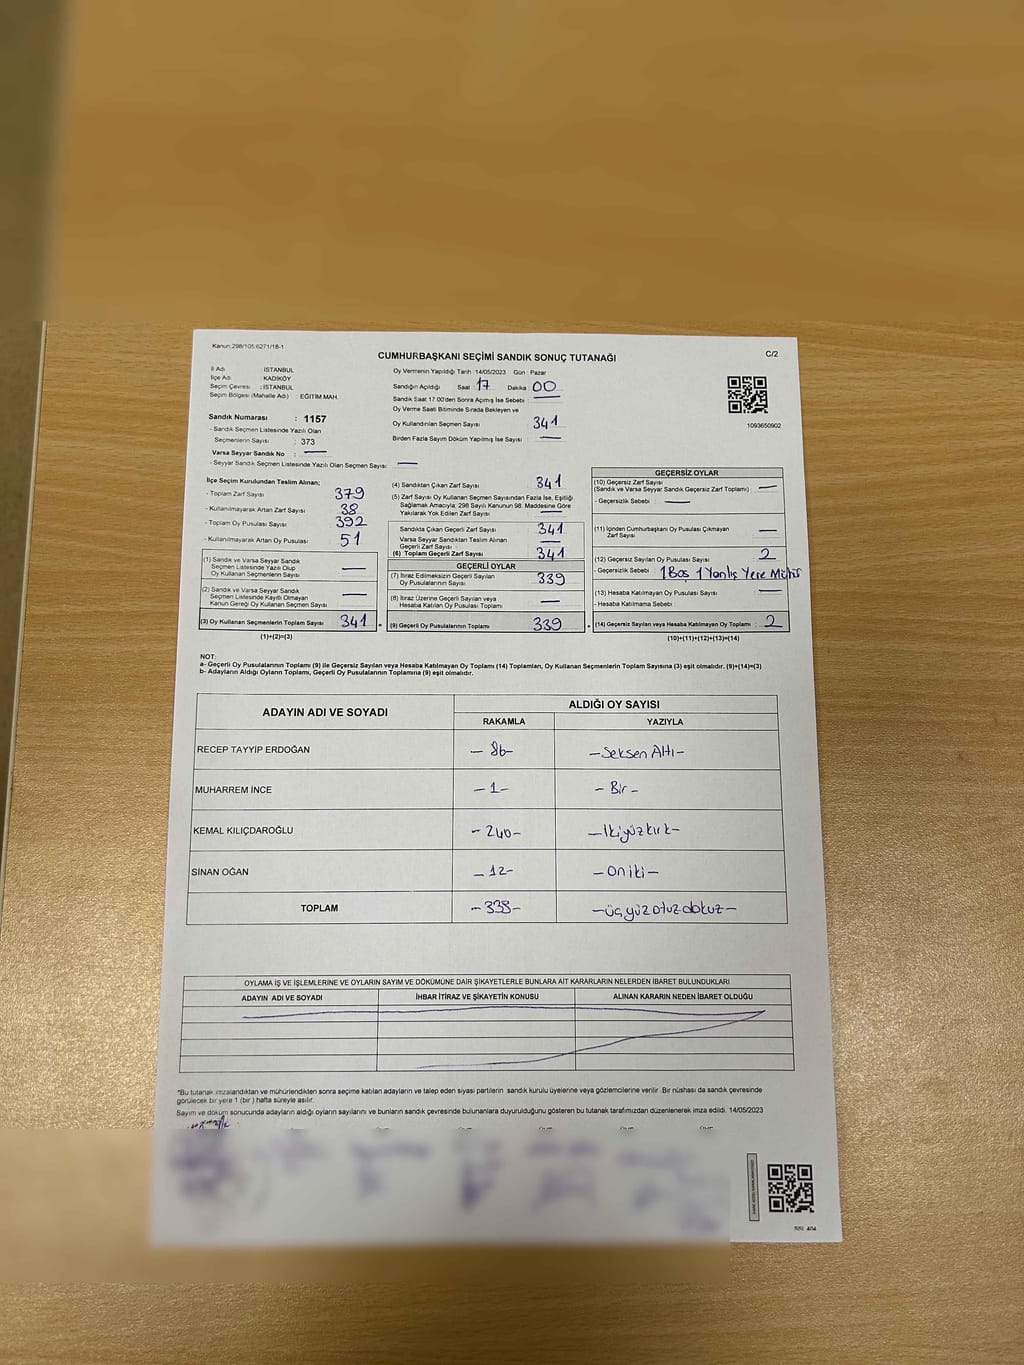 Kanun:298/105;6271/18-1
C/2
CUMHURBAŞKANI SEÇİMİ SANDIK SONUÇ TUTANAĞI
İl Adı : İSTANBUL
İlçe Adı : KADIKÖY
Seçim Çevresi : İSTANBUL
Seçim Bölgesi (Mahalle Adı) : EĞİTİM MAH.
Sandık Numarası : 1157
- Sandık Seçmen Listesinde Yazılı Olan
Seçmenlerin Sayısı : 373
Varsa Seyyar Sandık No : —
- Seyyar Sandık Seçmen Listesinde Yazılı Olan Seçmen Sayısı : —
Oy Vermenin Yapıldığı Tarih : 14/05/2023 Gün : Pazar
Sandığın Açıldığı Saat : 17 Dakika : 00
Sandık Saat 17.00'den Sonra Açılmış İse Sebebi : —
Oy Verme Saati Bitiminde Sırada Bekleyen ve
Oy Kullandırılan Seçmen Sayısı 341
Birden Fazla Sayım Döküm Yapılmış İse Sayısı —
1093650902
İlçe Seçim Kurulundan Teslim Alınan;
- Toplam Zarf Sayısı 379
- Kullanılmayarak Artan Zarf Sayısı 38
- Toplam Oy Pusulası Sayısı 392
- Kullanılmayarak Artan Oy Pusulası 51
(1) Sandık ve Varsa Seyyar Sandık
Seçmen Listesinde Yazılı Olup
Oy Kullanan Seçmenlerin Sayısı —
(2) Sandık ve Varsa Seyyar Sandık
Seçmen Listesinde Kayıtlı Olmayan
Kanun Gereği Oy Kullanan Seçmen Sayısı —
(3) Oy Kullanan Seçmenlerin Toplam Sayısı 341
(1)+(2)=(3)
(4) Sandıktan Çıkan Zarf Sayısı 341
(5) Zarf Sayısı Oy Kullanan Seçmen Sayısından Fazla İse, Eşitliği
Sağlamak Amacıyla; 298 Sayılı Kanunun 98. Maddesine Göre
Yakılarak Yok Edilen Zarf Sayısı —
Sandıkta Çıkan Geçerli Zarf Sayısı 341
Varsa Seyyar Sandıktan Teslim Alınan
Geçerli Zarf Sayısı —
(6) Toplam Geçerli Zarf Sayısı 341
GEÇERLİ OYLAR
(7) İtiraz Edilmeksizin Geçerli Sayılan
Oy Pusulalarının Sayısı 339
(8) İtiraz Üzerine Geçerli Sayılan veya
Hesaba Katılan Oy Pusulası Toplamı —
(9) Geçerli Oy Pusulalarının Toplamı 339
GEÇERSİZ OYLAR
(10) Geçersiz Zarf Sayısı
(Sandık ve Varsa Seyyar Sandık Geçersiz Zarf Toplamı) : —
- Geçersizlik Sebebi : —
(11) İçinden Cumhurbaşkanı Oy Pusulası Çıkmayan
Zarf Sayısı —
(12) Geçersiz Sayılan Oy Pusulası Sayısı 2
- Geçersizlik Sebebi : 1 Boş 1 Yanlış Yere Mühür
(13) Hesaba Katılmayan Oy Pusulası Sayısı —
- Hesaba Katılmama Sebebi :
(14) Geçersiz Sayılan veya Hesaba Katılmayan Oy Toplamı : 2
(10)+(11)+(12)+(13)=(14)
NOT:
a- Geçerli Oy Pusulalarının Toplamı (9) ile Geçersiz Sayılan veya Hesaba Katılmayan Oy Toplamı (14) Toplamları, Oy Kullanan Seçmenlerin Toplam Sayısına (3) eşit olmalıdır. (9)+(14)=(3)
b- Adayların Aldığı Oyların Toplamı, Geçerli Oy Pusulalarının Toplamına (9) eşit olmalıdır.
ADAYIN ADI VE SOYADI
ALDIĞI OY SAYISI
RAKAMLA YAZIYLA
RECEP TAYYİP ERDOĞAN – 86 – – Seksen Altı –
MUHARREM İNCE – 1 – – Bir –
KEMAL KILIÇDAROĞLU – 240 – – İkiyüzkırk –
SİNAN OĞAN – 12 – – on iki –
TOPLAM – 339 – – üçyüzotuzdokuz –
OYLAMA İŞ VE İŞLEMLERİNE VE OYLARIN SAYIM VE DÖKÜMÜNE DAİR ŞİKAYETLERLE BUNLARA AİT KARARLARIN NELERDEN İBARET BULUNDUKLARI
ADAYIN ADI VE SOYADI İHBAR İTİRAZ VE ŞİKAYETİN KONUSU ALINAN KARARIN NEDEN İBARET OLDUĞU
*Bu tutanak imzalandıktan ve mühürlendikten sonra seçime katılan adayların ve talep eden siyasi partilerin sandık kurulu üyelerine veya gözlemcilerine verilir. Bir nüshası da sandık çevresinde
görülecek bir yere 1 (bir ) hafta süreyle asılır.
Sayım ve döküm sonucunda adayların aldığı oyların sayılarını ve bunların sandık çevresinde bulunanlara duyurulduğunu gösteren bu tutanak tarafımızdan düzenlenerek imza edildi. 14/05/2023